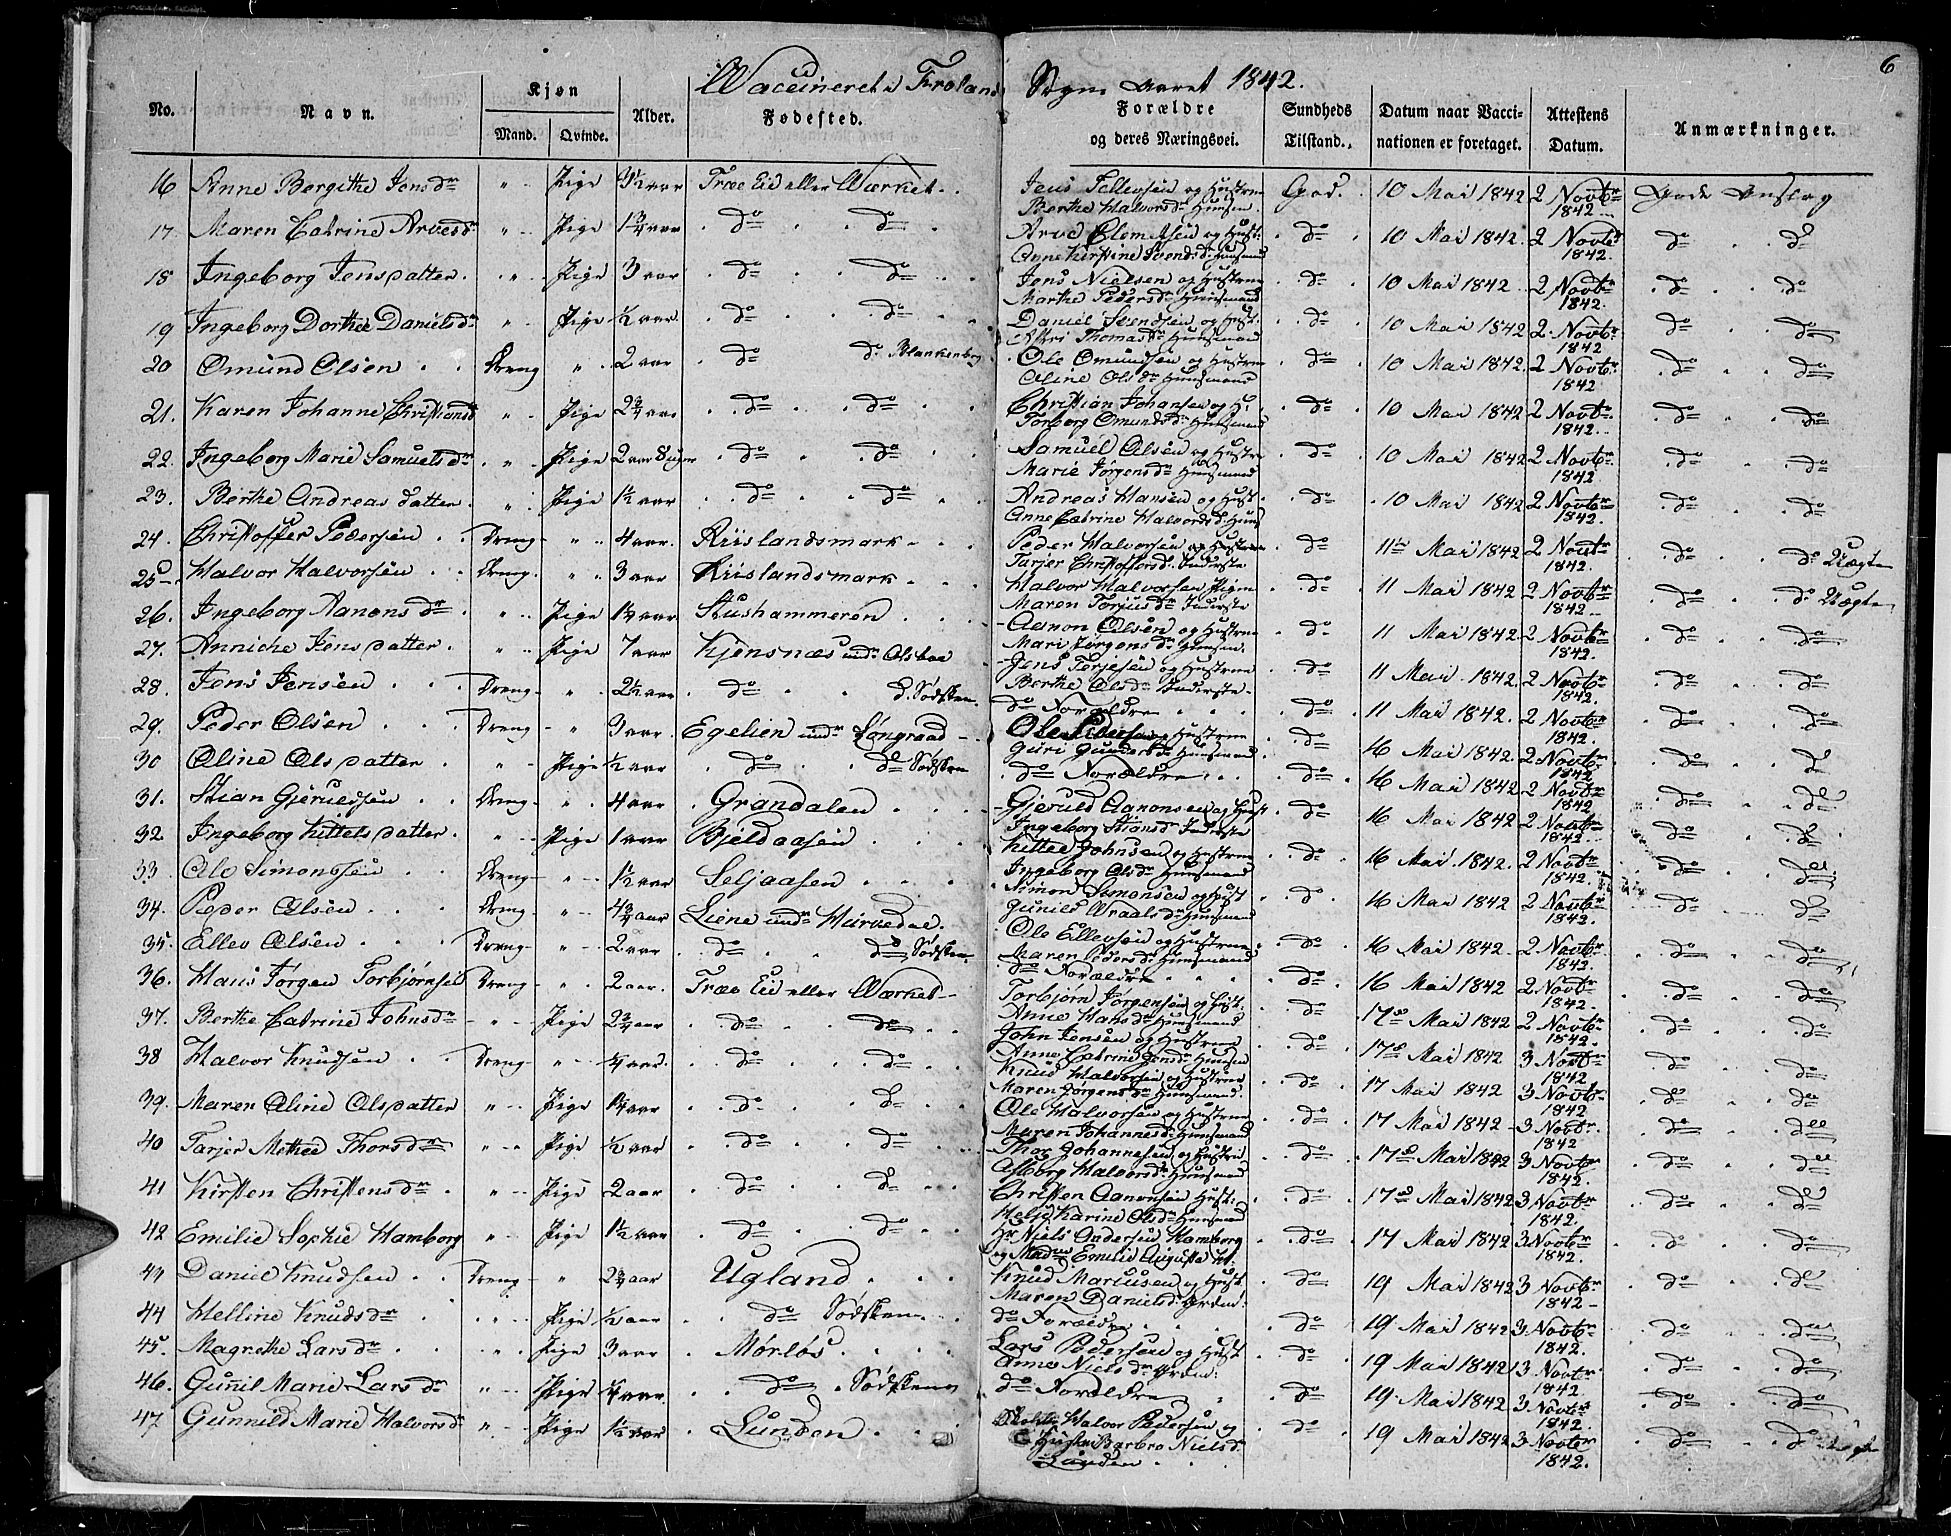 6
Vaccineret i Froland Sogn Aaret 1842.
No. Navn. Kjøn Mand. Qvinde. Alder. Fødested. Forældre og deres Næringsvei. Sundheds Tilstand. Datum naar Vaccinationen er foretaget. Attestens Datum. Anmærkninger.
16 Anne Bergithe Jensdr " Pige 3½ aar Træe Eid eller Værket Jens Tellevsen og Hustrue Berthe Halvorsdr Huusm. God. 10 Mai 1842 2 Novbr 1842 Gode Anslag
17. Maren Catrine Arvesdr " Pige 1¾ aar do do Arve Clemetsen og Hust. Anne Kirstine Svendsdr Huusmand do 10 Mai 1842. 2 Novbr 1842. do do
18 Ingeborg Jensdatter. " Pige 3 aar do do Jens Nielsen og Hustrue Marthe Pedersdr Huusmand do 10 Mai 1842 2 Novbr 1842. do do
19 Ingeborg Dorthea Danielsdr " Pige ½ aar do do Daniel Svendsen og Hust. Thomasdr Huusmand do 10 Mai 1842 2 Novbr 1842 do do
20 Omund Olsen Dreng " 2 aar do do Blankenborg Ole Omundsen og Hustrue Oline Olsdr Huusmand do 10 Mai 1842. 2 Novbr 1842. do do
21. Karen Johanne Christiansdr " Pige 2¾ aar do do Christian Johansen og H. Torborg Omundsdr Huusmand do 10 Mai 1842 2 Novbr 1842. do do
22. Ingeborg Marie Samuelsdr " Pige 2 aar 8 uger do do Samuel Olsen og Hustru Marie Jørgensdr Huusmand do 10 Mai 1842 2 Novbr 1842 do do
23. Berthe Andreasdatter " Pige 1½ aar do do Andreas Hansen og Hust. Anne Catrine Halvorsdr Huus do 10 Mai 1842 2 Novbr 1842. do do
24. Christoffer Pedersen Dreng " 4 aar. Riislandsmark Peder Halvorsen og Hustrue Tarjer Christofforsdr Inderste do 11 Mai 1842 2 Novbr 1842. do do Uægte
25 Halvor Halvorsen Dreng. " 3 aar Riislandsmark Halvor Halvorsen Pigen Maren Torjusdr Inderste do 11 Mai 1842 2 Novbr 1842 do do Uægte
26. Ingeborg Aanonsdr " Pige 1¼ aar Stushammeren Aanon Olsen og Hustrue Mari Jørgensdr Huusm. do 11 Mai 1842. 2 Novbr 1842. do do
27. Anniche Jensdatter " Pige 7 aar Kjensnæs undr Olsbae Jens Terjesen og Hustrue Berthe Olsdr Inderste do 11 Mai 1842. 2 Novbr 1842. do do
28. Jens Jensen Dreng " 2½ aar do do Sødsken do Forældre do 11 Mai 1842. 2 Novbr 1842. do do
29. Peder Olsen Dreng " 3 aar Egelien undr Løngraad Ole Pedersen og Hustrue Guri Gundersdr Huusmand do 16 Mai 1842. 2 Novbr 1842 do do
30 Oline Olsdatter " Pige ½ aar do do Sødsken do Forældre do 16 Mai 1842. 2 Novbr 1842 do do
31. Stian Gjeruldsen Dreng " 4 aar Grandalen Gjeruld Aanonsen og Hust Ingeborg Stiansdr Inderste do 16 Mai 1842 2 Novbr 1842 do do
32. Ingeborg Kittelsdatter " Pige 1 aar Bjeldaasen Kittel Johnsen og Hustrue Ingeborg Olsdr Huusmand do 16 Mai 1842. 2 Novbr 1842. do do
33. Ole Simonssen Dreng " 1½ aar Seljaasen Simon Simonsen og Hust Gunild Wraalsdr Huusmand do 16 Mai 1842 2 Novbr 1842. do do
34. Peder Olsen Dreng " 4¾ aar Liene undr Hirvedal. Ole Ellevsen og Hustrue Maren Pedersdr Huusmand do 16 Mai 1842 2 Novbr 1842. do do
35. Ellev Olsen Dreng " 2 aar do do Sødsken do Forældre do 16 Mai 1842 2 Novbr 1842. do do
36. Hans Jørgen Torbjørnsen Dreng " 2 aar. Træe Eid eller Værket Torbjørn Jørgensen og Hust. Anne Hansdr Huusmand do 17de Mai 1842 2 Novbr 1842. do do
37. Berthe Catrine Johnsdr " Pige 2¾ aar do do John Jensen og Hustrue Anne Catrine Jensdr Huusm do 17de Mai 1842 3 Novbr 1842 do do
38 Halvor Knudsen Dreng " ¼ aar. do do Knud Halvorsen og Hustrue Maren Jørgensdr Huusmand. do 17 Mai 1842 3 Novbr 1842 do do
39. Maren Oline Olsdatter " Pige 1¼ aar do do Ole Halvorsen og Hustrue Maren Johannesdr Huusmand do 17 Mai 1842 3 Novbr 1842 do do
40 Tarjer Methea Thorsdr " Pige ½ aar do do Thor Johannesen og Hustru Asborg Halvorsdr Huusmand do 17de Mai 1842 3 Novbr 1842. do do
41 Kirsten Christensdr " Pige 2 aar do do Christen Aanonsen Hust. Helje Karine Olsdr Huusmand do 17de Mai 1842 3 Novbr 1842. do do
42 Emilie Sophie Hamborg " Pige 1½ aar do do Hr Niels Andersen Hamborg og Madme Emilie Augusta do 17 Mai 1842 3 Novbr 1842. do do
43 Daniel Knudsen Dreng " 2¾ aar Ugland Knud Mariusen og Hust. Maren Danielsdr Grdm. do 19 Mai 1842 3 Novbr 1842 do do
44 Helline Knudsdr " Pige ½ aar do Sødsken do Forældre do 19 Mai 1842 3 Novbr 1842. do do
45. Magrethe Larsdr " Pige 3 aar Mørløs Lars Pedersen og Hust Anne Nielsdr Grdm. do 19 Mai 1842 3 Novbr 1842 do do
46. Gunnil Marie Larsdr " Pige ¼ aar do Sødskene do Forældre do 19 Mai 1842 3 Novbr 1842 do do
47 Gunnild Marie Halvorsdr " Pige 1½ aar Lunden Halvor Pedersen og Hustru Barbro Nielsdr Lunden do 19 Mai 1842 3 Novbr 1842. do do